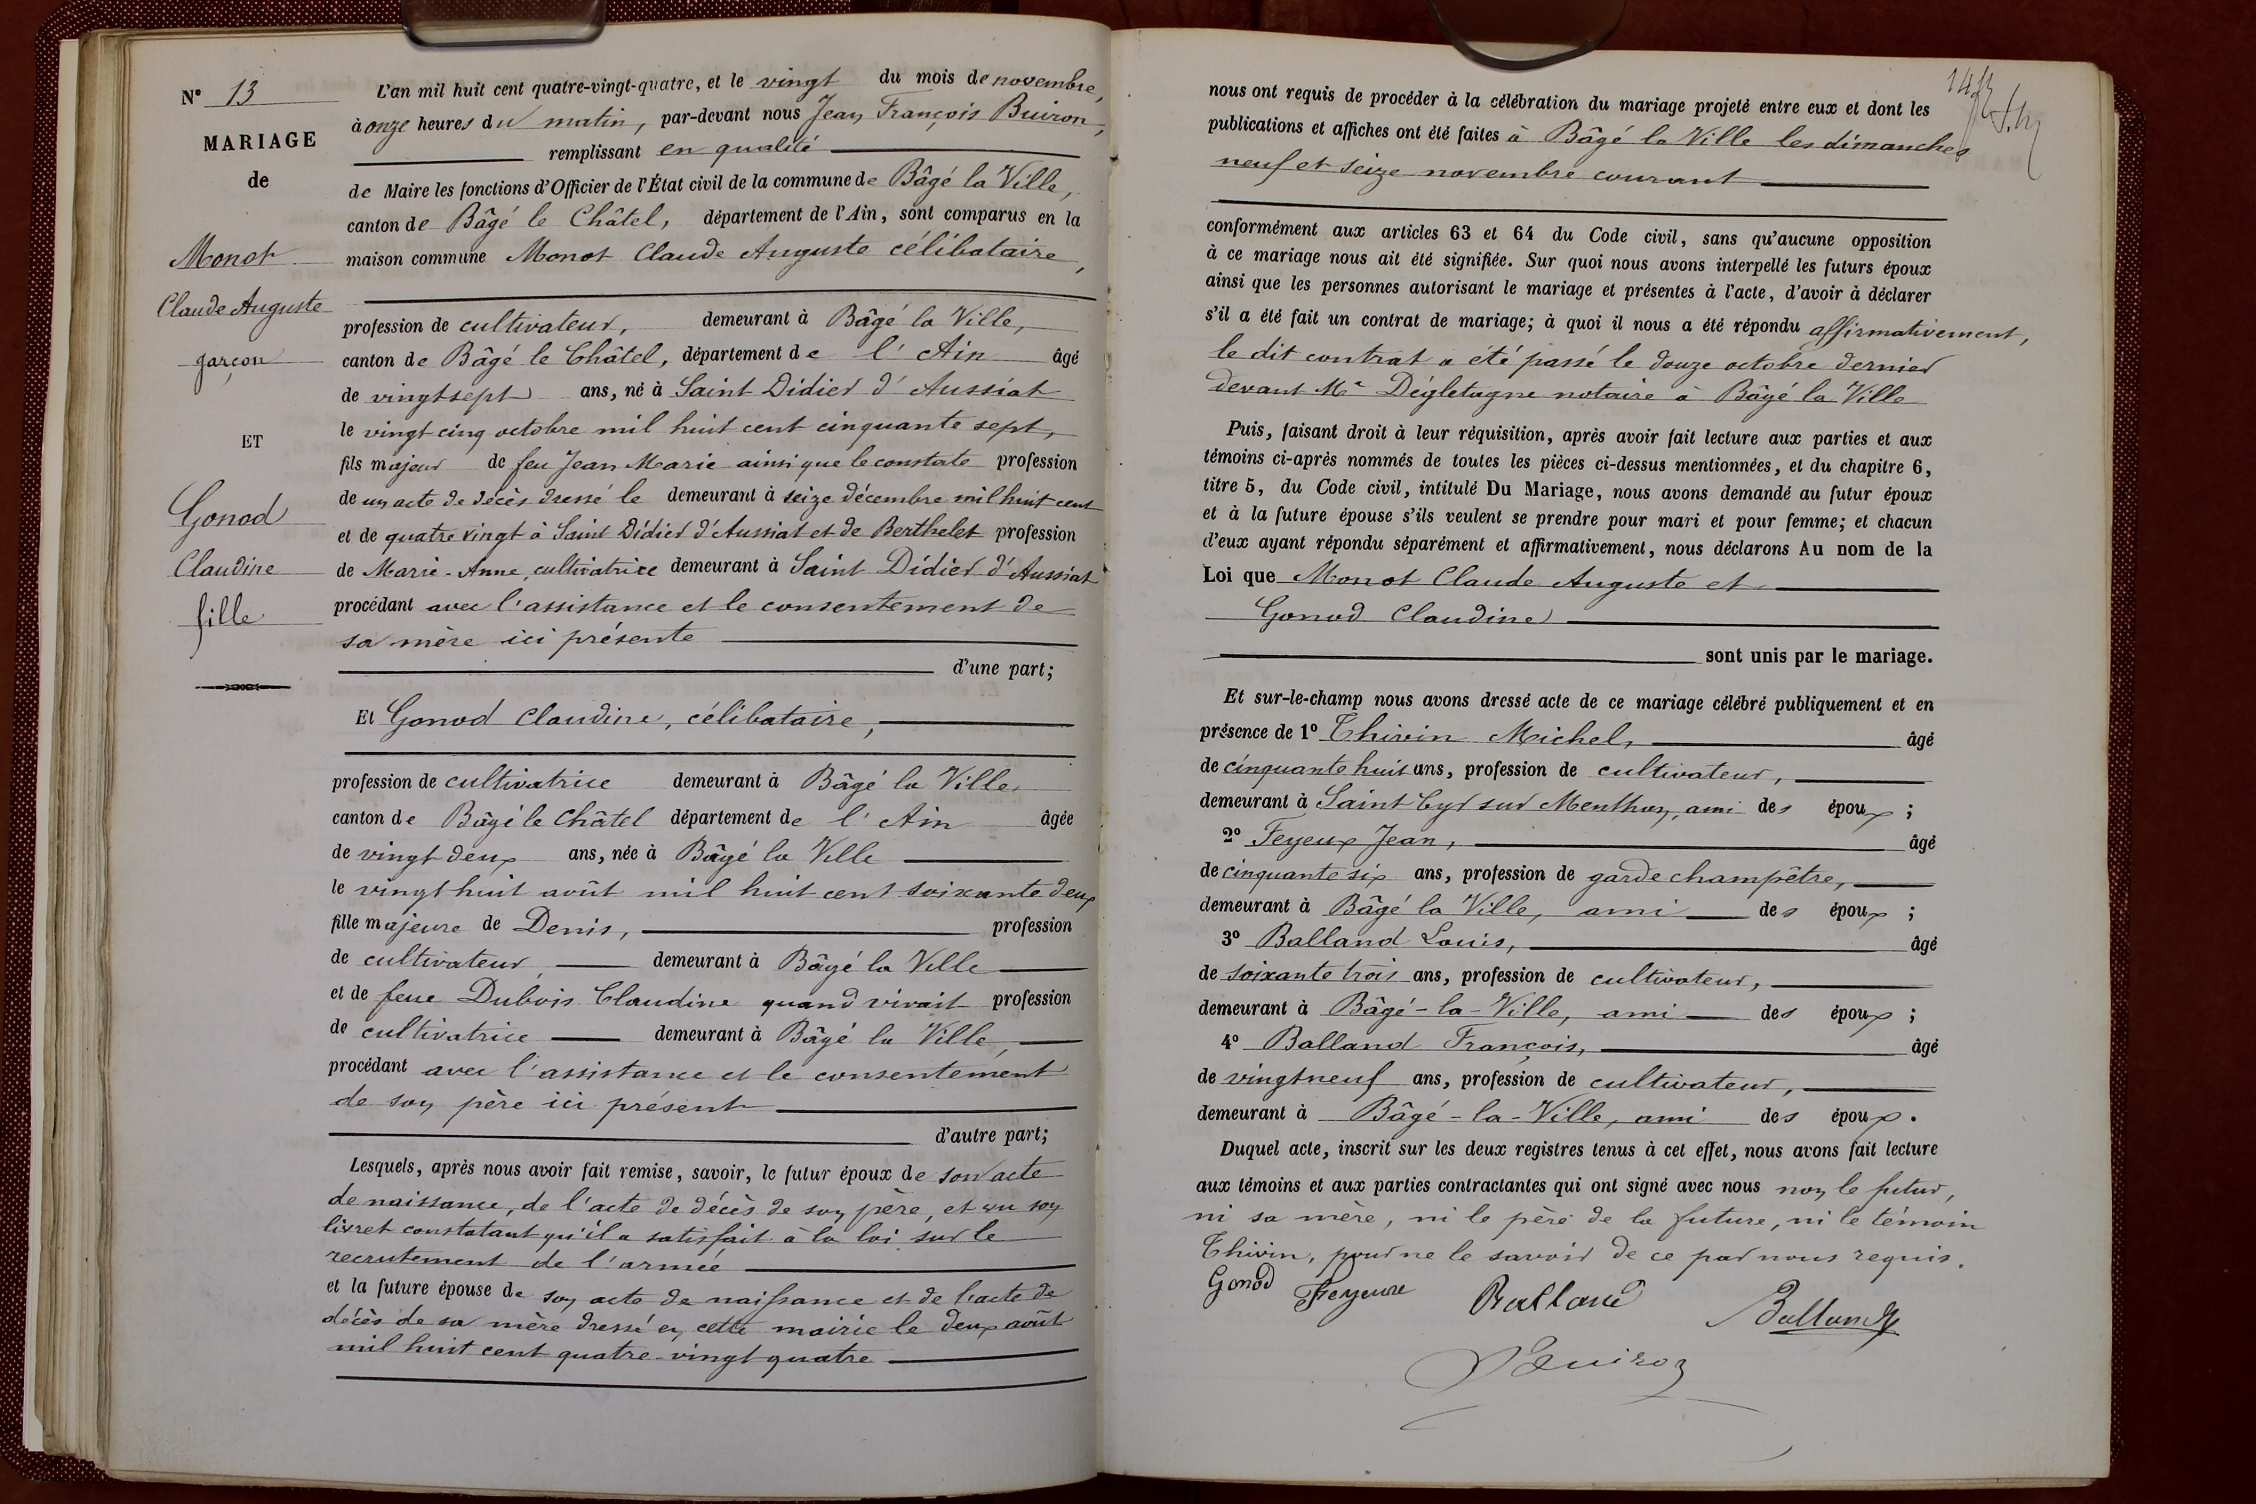 N° 13
MARIAGE
de
Monot
Claude Auguste
garçon
ET
Gonod
Claudine
fille
L'an mil huit cent quatre-vingt-quatre, et le vingt du mois de novembre,
à onze heures du matin, par-devant nous Jean François Buiron,
remplissant en qualité
de Maire les fonctions d'Officier de l'État civil de la commune de Bâgé la Ville,
canton de Bâgé le Châtel, département de l'Ain, sont comparus en la
maison commune Monot Claude Auguste célibataire,
profession de cultivateur, demeurant à Bâgé la Ville,
canton de Bâgé le Châtel, département de l'Ain âgé
de vingt sept ans, né à Saint Didier d'Aussiat
le vingt cinq octobre mil huit cent cinquante sept,
fils majeur de feu Jean Marie ainsi que le constate profession
de un acte de décès dressé le demeurant à seize décembre mil huit cent
et de quatre vingt à Saint Didier d'Aussiat et de Berthelet profession
de Marie-Anne, cultivatrice demeurant à Saint Didier d'Aussiat
procédant avec l'assistance et le consentement de
sa mère ici présente
d'une part;
Et Gonod Claudine, célibataire,
profession de cultivatrice demeurant à Bâgé la Ville
canton de Bâgé le Châtel département de l'Ain âgée
de vingt deux ans, née à Bâgé la Ville
le vingt huit août mil huit cent soixante deux
fille majeure de Denis, profession
de cultivateur, demeurant à Bâgé la Ville
et de feue Dubois Claudine quand vivait profession
de cultivatrice demeurant à Bâgé la Ville,
procédant avec l'assistance et le consentement
de son père ici présent
d'autre part;
Lesquels, après nous avoir fait remise, savoir, le futur époux de son acte
de naissance, de l'acte de décès de son père, et vu son
livret constatant qu'il a satisfait à la loi sur le
recrutement de l'armée
et la future épouse de son acte de naissance et de l'acte de
décès de sa mère dressé en cette mairie le deux août
mil huit cent quatre-vingt quatre
nous ont requis de procéder à la célébration du mariage projeté entre eux et dont les
publications et affiches ont été faites à Bâgé la Ville les dimanches
neuf et seize novembre courant
conformément aux articles 63 et 64 du Code civil, sans qu'aucune opposition
à ce mariage nous ait été signifiée. Sur quoi nous avons interpellé les futurs époux
ainsi que les personnes autorisant le mariage et présentes à l'acte, d'avoir à déclarer
s'il a été fait un contrat de mariage; à quoi il nous a été répondu affirmativement,
le dit contrat a été passé le douze octobre dernier
devant Me Dégletagne notaire à Bâgé la Ville
Puis, faisant droit à leur réquisition, après avoir fait lecture aux parties et aux
témoins ci-après nommés de toutes les pièces ci-dessus mentionnées, et du chapitre 6,
titre 5, du Code civil, intitulé Du Mariage, nous avons demandé au futur époux
et à la future épouse s'ils veulent se prendre pour mari et pour femme; et chacun
d'eux ayant répondu séparément et affirmativement, nous déclarons Au nom de la
Loi que Monot Claude Auguste et
Gonod Claudine
sont unis par le mariage.
Et sur-le-champ nous avons dressé acte de ce mariage célébré publiquement et en
présence de 1° Thivin Michel, âgé
de cinquante huit ans, profession de cultivateur,
demeurant à Saint Cyr sur Menthon, ami des époux;
2° Feyeux Jean, âgé
de cinquante six ans, profession de garde champêtre,
demeurant à Bâgé la Ville, ami des époux;
3° Balland Louis, âgé
de soixante trois ans, profession de cultivateur,
demeurant à Bâgé-la-Ville, ami des époux;
4° Balland François, âgé
de vingt neuf ans, profession de cultivateur,
demeurant à Bâgé-la-Ville, ami des époux.
Duquel acte, inscrit sur les deux registres tenus à cet effet, nous avons fait lecture
aux témoins et aux parties contractantes qui ont signé avec nous non le futur,
ni sa mère, ni le père de la future, ni le témoin
Thivin, pour ne le savoir de ce par nous requis.
Gonod Feyeux Balland Balland
Buiron